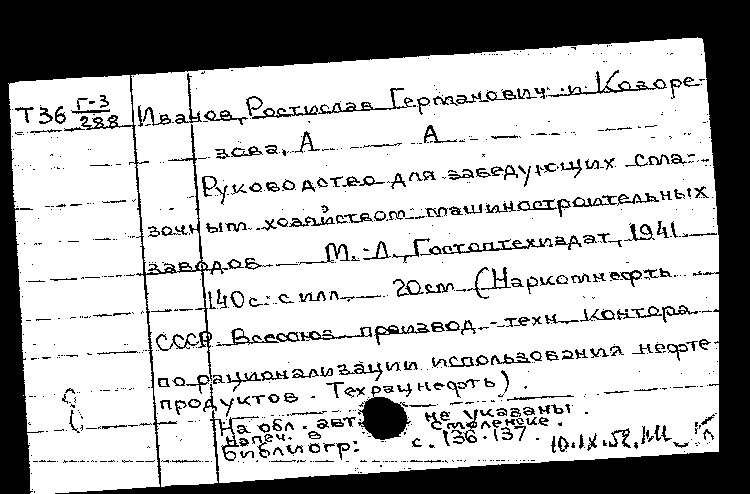 Т36 Г-3/288 Иванов, Ростислав Германович и Козоре-
зова, А А
Руководство для заведующих сма-
зочным хозяйством машиностроительных
заводов М.-Л., Гостоптехиздат, 1941
140с. с илл. 20см (Наркомнефть
СССР Всесоюз производ.-техн контора
по рационализации использования нефте-
продуктов. Техрацнефть).
На обл. авт. не указаны.
Напеч. в Смоленске.
Библиогр: с. 136-137. 10.IX.52.